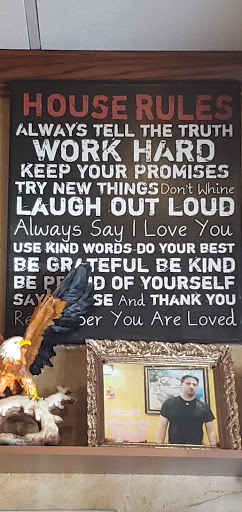 HOUSE RULES
ALWAYS TELL THE TRUTH
WORK HARD
KEEP YOUR PROMISES
TRY NEW THINGS Don't Whine
LAUGH OUT LOUD
Always Say I Love You
USE KIND WORDS DO YOUR BEST
BE GRATEFUL BE KIND
BE PROUD OF YOURSELF
SAY PLEASE And THANK YOU
Remember You Are Loved